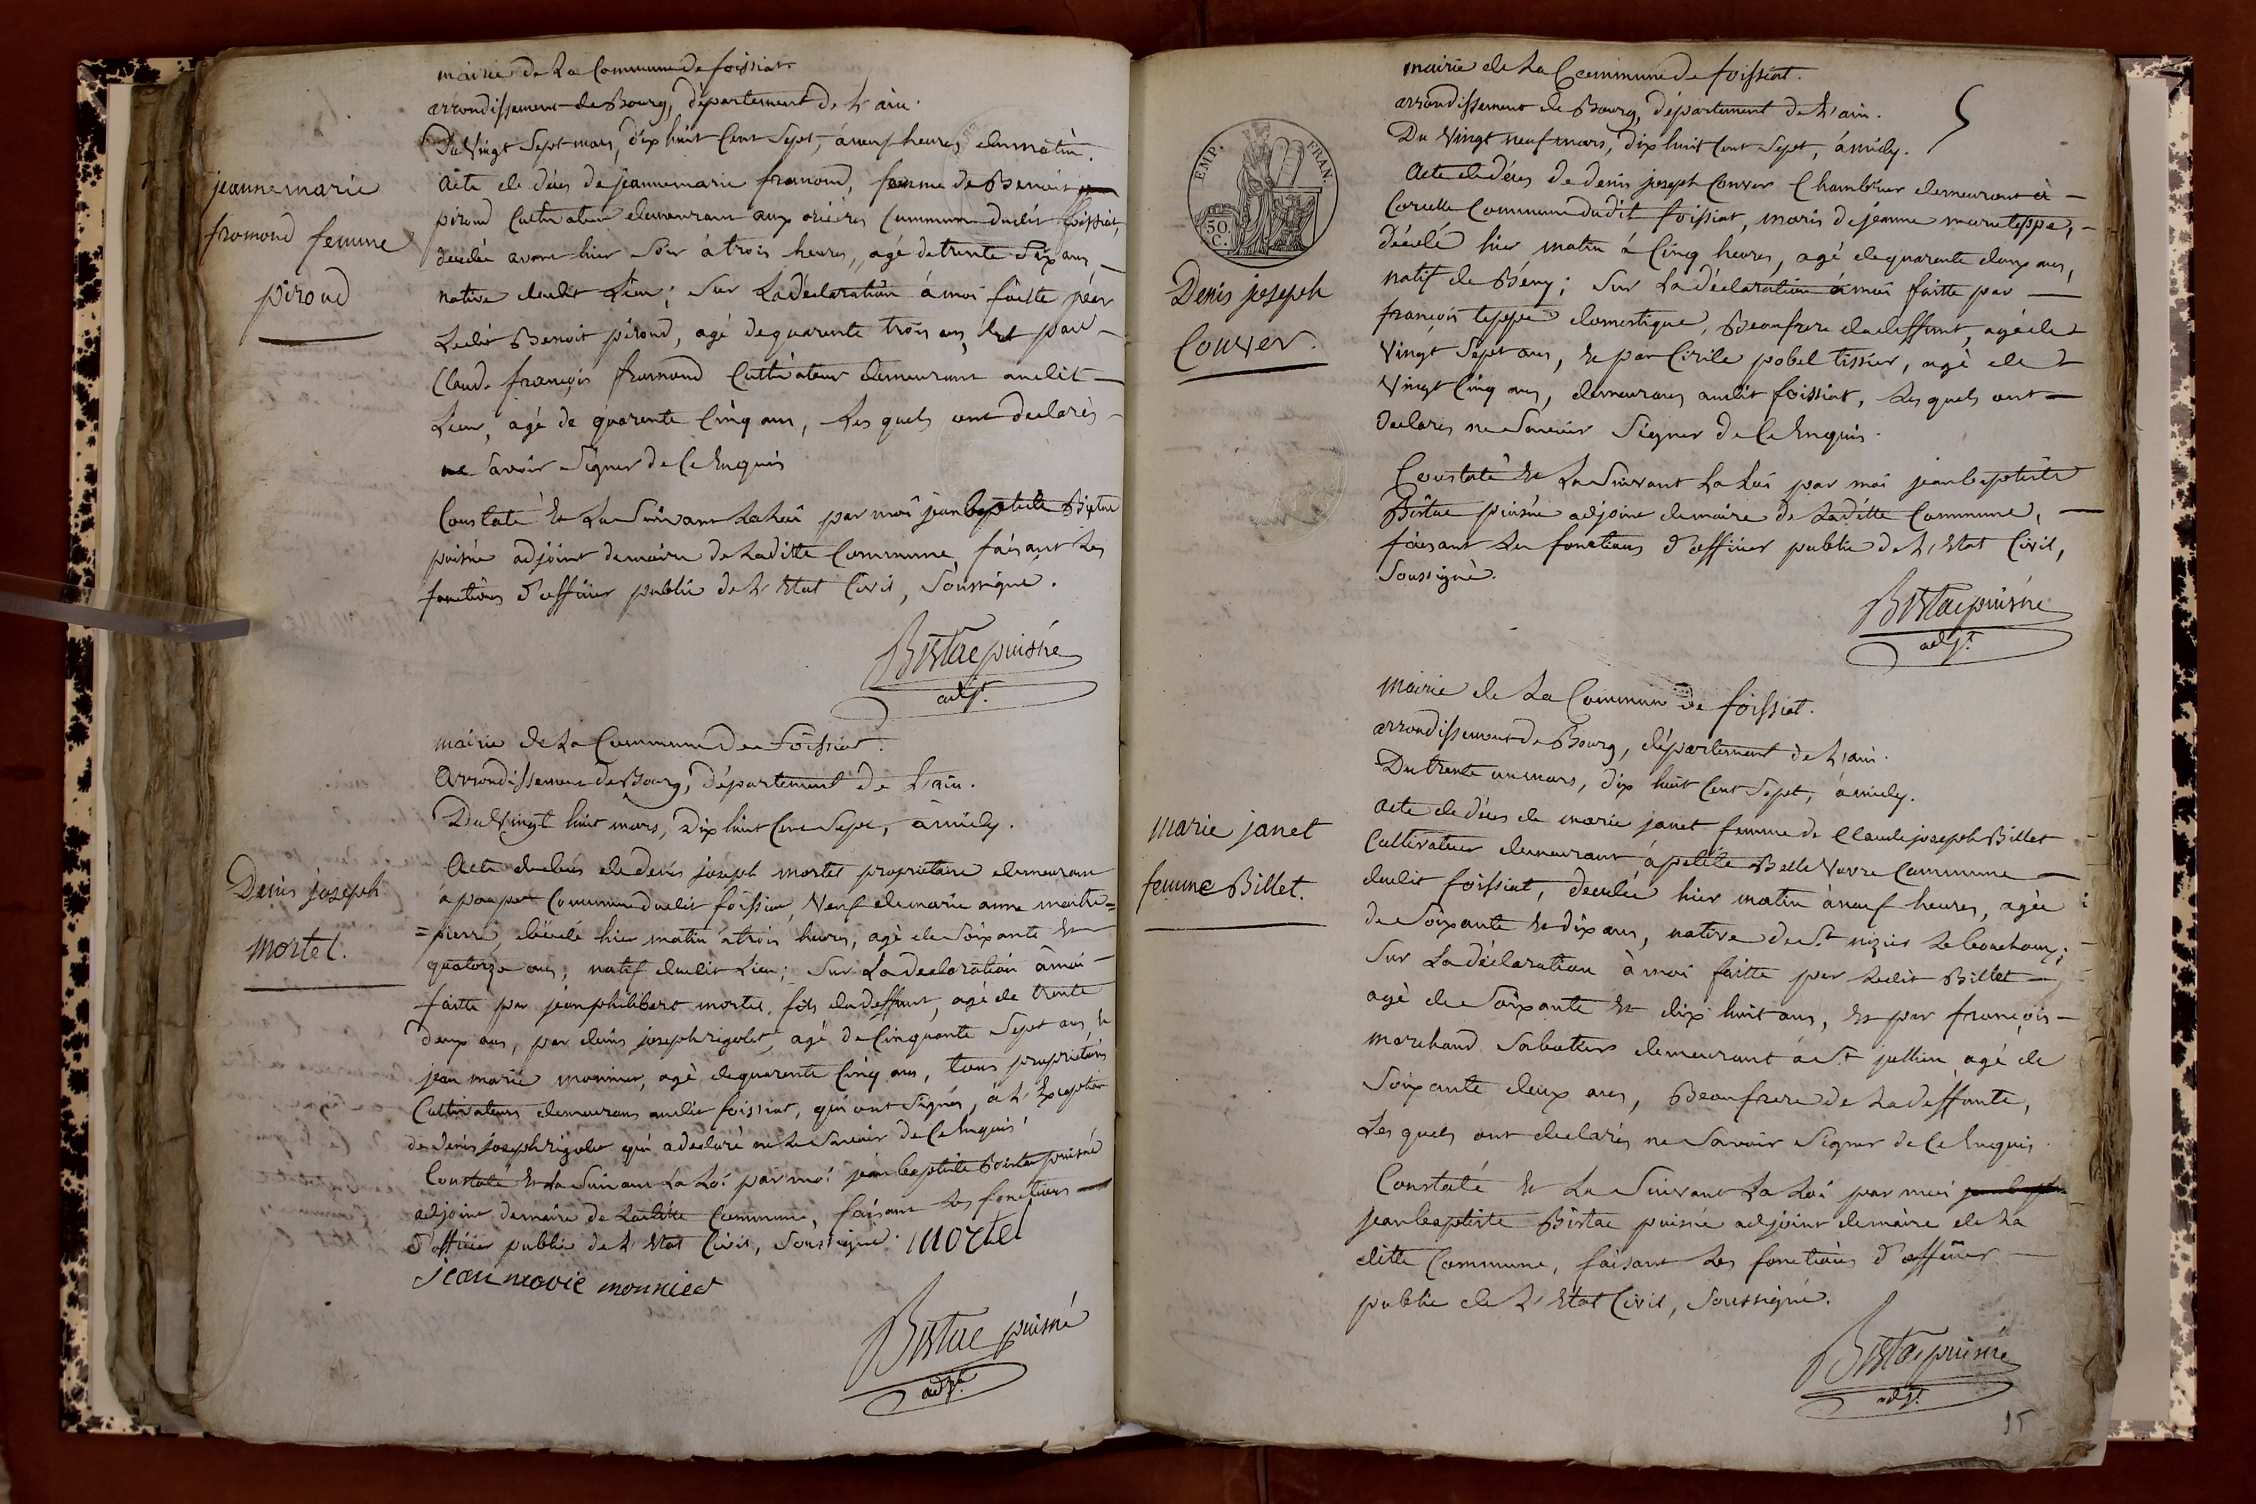 mairie de La Commune de foissiat.
arrondissement de Bourg, département de L'ain.
Du Vingt Sept mars, dix huit Cent Sept, à neuf heures du matin.
jeanne marie
fromond femme
piroud
acte de décès de jeanne marie fromond, femme de Benoit
piroud Cultivateur demeurant aux Commune dudit foissiat,
décédée avant hier Soir à trois heures, agé de trente Six ans,
native dudit Lieu; Sur La déclaration à moi faitte par
Ledit Benoit piroud, agé de quarente trois ans, Et par
Claude françois fromond Cultivateur demeurant audit
Lieu, agé de quarente Cinq ans, Les quels ont declarés
ne Savoir Signer de Ce Enquis
Constaté Et Lu Suivant La Loi par moi jean baptiste Bistac
puisné adjoint de maire de Laditte Commune, faisant Les
fonctions d'officier public de L'Etat Civil, Soussigné.
Bistac puisné
adjt.
mairie de La Commune de foissiat.
arrondissement de Bourg, département de L'ain.
Du Vingt huit mars, Dix huit Cent Sept, à midy.
Denis joseph
mortel.
Acte de décès de denis joseph mortel propriétaire demeurant
à Commune dudit foissiat, Veuf de marie anne maitre=
=pierre, décédé hier matin à trois heures, agé de Soixante Et
quatorze ans, natif dudit Lieu; Sur La declaration à moi
faitte par jean philibert mortel, fils du deffunt, agé de trente
deux ans, par denis joseph rigolet, agé de Cinquante Sept ans, Et
jean marie monnier, agé de quarente Cinq ans, tous propriétaires
Cultivateurs demeurans audit foissiat, qui ont Signés, à L'Exception
de denis joseph rigolet qui a declaré ne Le Savoir de Ce Enquis.
Constaté Et Lu Suivant La Loi par moi jean baptiste Bistac puisné
adjoint de maire de Laditte Commune, faisant Les fonctions
d'officier public de L'Etat Civil, Soussigné. mortel
jean marie monnier
Bistac puisné
adjt.
mairie de La Commune de foissiat.
arrondissement de Bourg, département de L'ain.
Du Vingt neuf mars, dix huit Cent Sept, à midy.
EMP. FRAN.
50 C.
Denis joseph
Couver.
Acte de décès de denis joseph Couver demeurant à
Corcelle Commune dudit foissiat, maris de jeanne marie teppe,
décédé hier matin à Cinq heures, agé de quarente deux ans,
natif de Bény; Sur La déclaration à moi faitte par
françois teppe domestique, Beaufrere du deffunt, agé de
Vingt Sept ans, Et par Cirile pobel tissier, agé de
Vingt Cinq ans, demeurans audit foissiat, Les quels ont
Declarés ne Savoir Signer de Ce Enquis.
Constaté Et Lu Suivant La Loi par moi jean baptiste
Bistac puisné adjoint de maire de Laditte Commune,
faisant Les fonctions d'officier public de L'Etat Civil,
Soussigné.
Bistac puisné
adjt.
mairie de La Commune de foissiat.
arrondissement de Bourg, département de L'ain.
Du trente un mars, dix huit Cent Sept, à midy.
marie janet
femme Billet.
acte de décès de marie janet femme de Claude joseph Billet
Cultivateur demeurant à petite Belle Vavre Commune
dudit foissiat, decedée hier matin à neuf heures, agée
de Soixante Et dix ans, native de St. nizier Le bouchoux;
Sur La déclaration à moi faitte par Ledit Billet
agé de Soixante Et dix huit ans, Et par françois
marchand Sabotier demeurant à St. jullien, agé de
Soixante deux ans, Beaufrere de La deffunte,
Les quels ont declarés ne Savoir Signer de Ce Enquis.
Constaté Et Lu Suivant La Loi par moi
jean baptiste Bistac puisné adjoint de maire de La
ditte Commune, faisant Les fonctions d'officier
public de L'Etat Civil, Soussigné.
Bistac puisné
adjt.
15